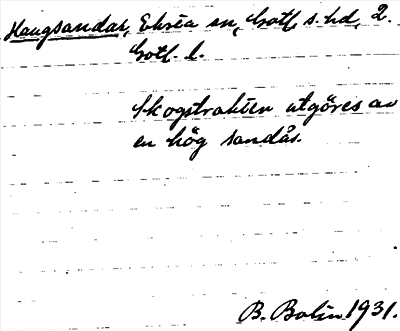 Haugsandar, Ekeby sn, Gotl s. hd, 2.
Gotl. l.
Skogstrakten utgöres av
en hög sandås.
B. Bolin 1931.